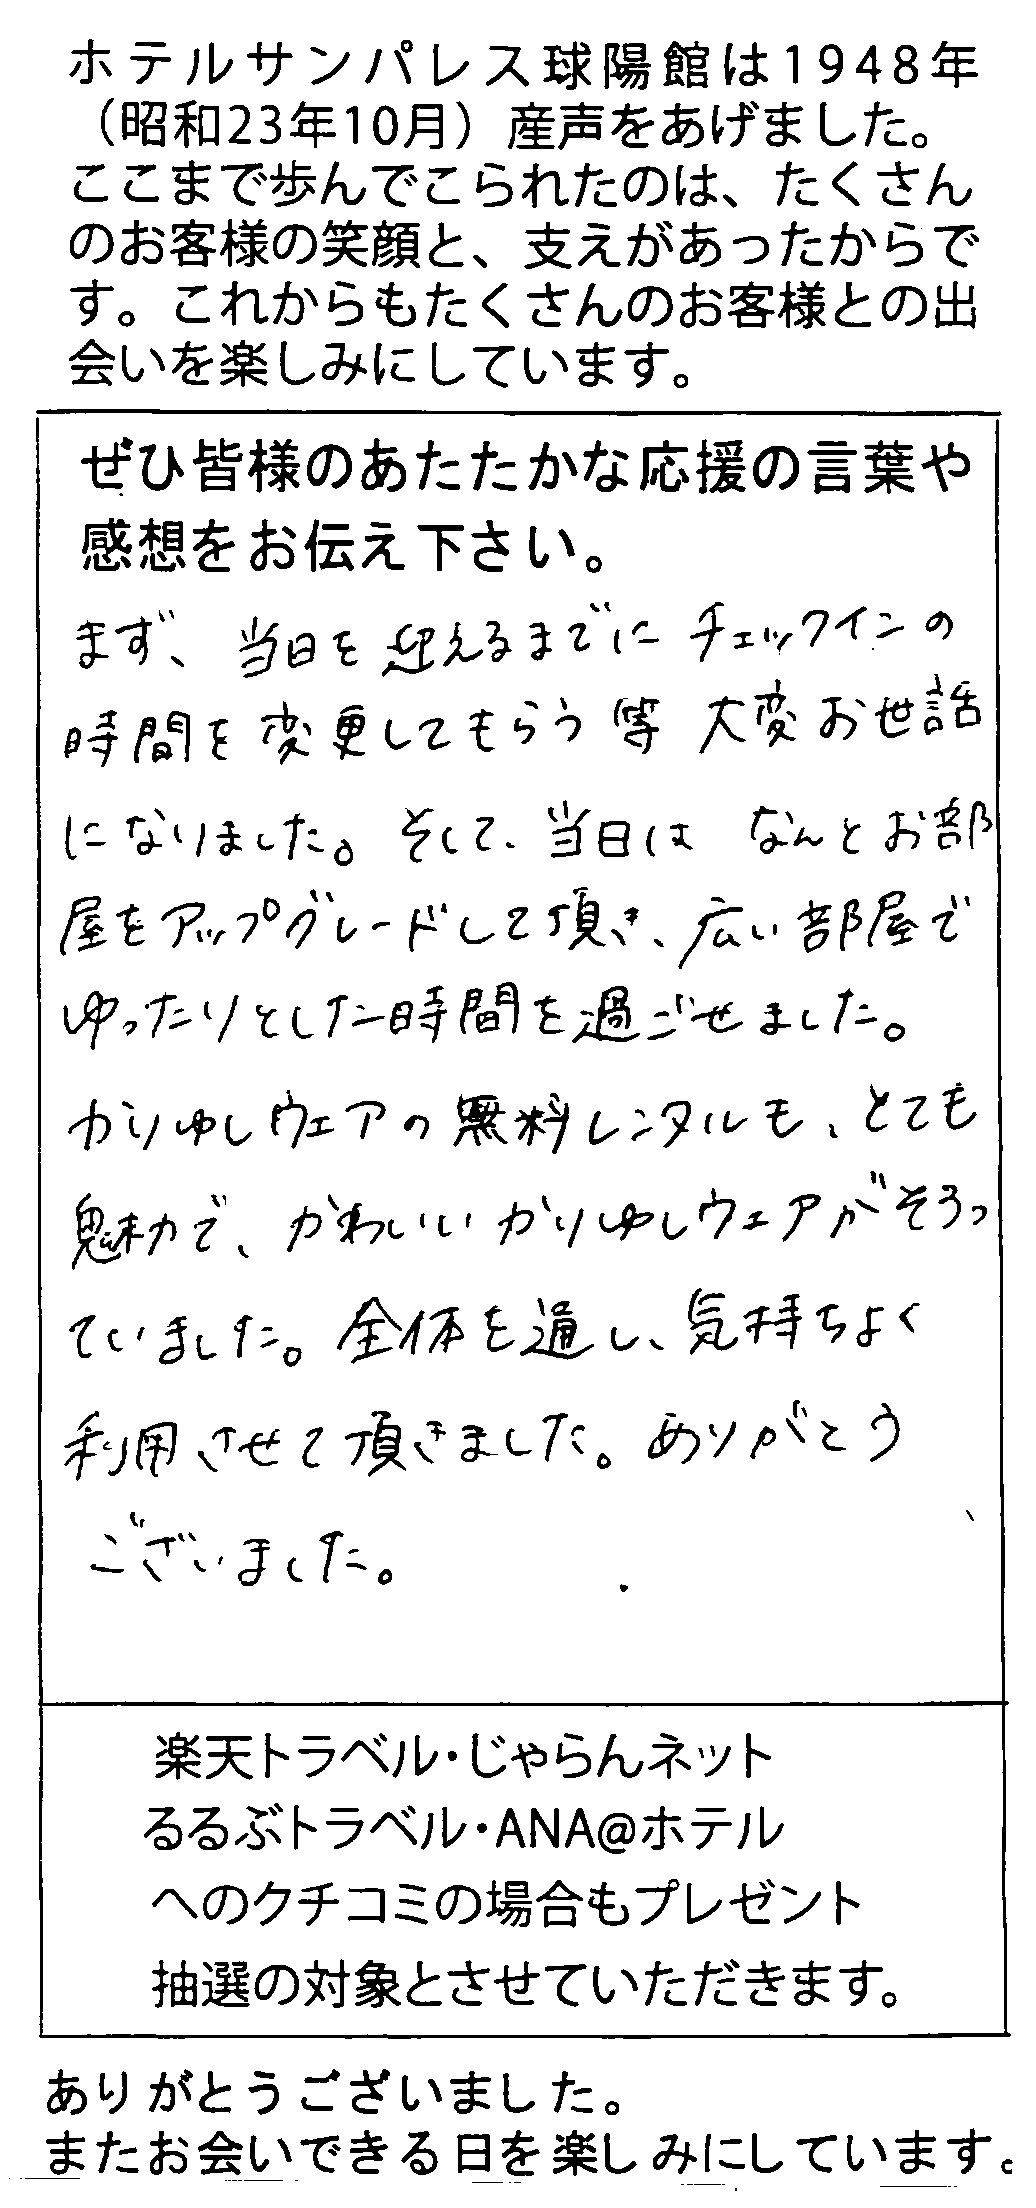 ホテルサンパレス球陽館は1948年
（昭和23年10月）産声をあげました。
ここまで歩んでこられたのは、たくさん
のお客様の笑顔と、支えがあったからで
す。これからもたくさんのお客様との出
会いを楽しみにしています。
ぜひ皆様のあたたかな応援の言葉や
感想をお伝え下さい。
まず、当日を迎えるまでにチェックインの
時間を変更してもらう等 大変お世話
になりました。そして、当日は なんとお部
屋をアップグレードして頂き、広い部屋で
ゆったりとした時間を過ごせました。
かりゆしウェアの無料レンタルも、とても
魅力で、かわいいかりゆしウェアがそろっ
ていました。全体を通し、気持ちよく
利用させて頂きました。ありがとう
ございました。
楽天トラベル・じゃらんネット
るるぶトラベル・ANA@ホテル
へのクチコミの場合もプレゼント
抽選の対象とさせていただきます。
ありがとうございました。
またお会いできる日を楽しみにしています。